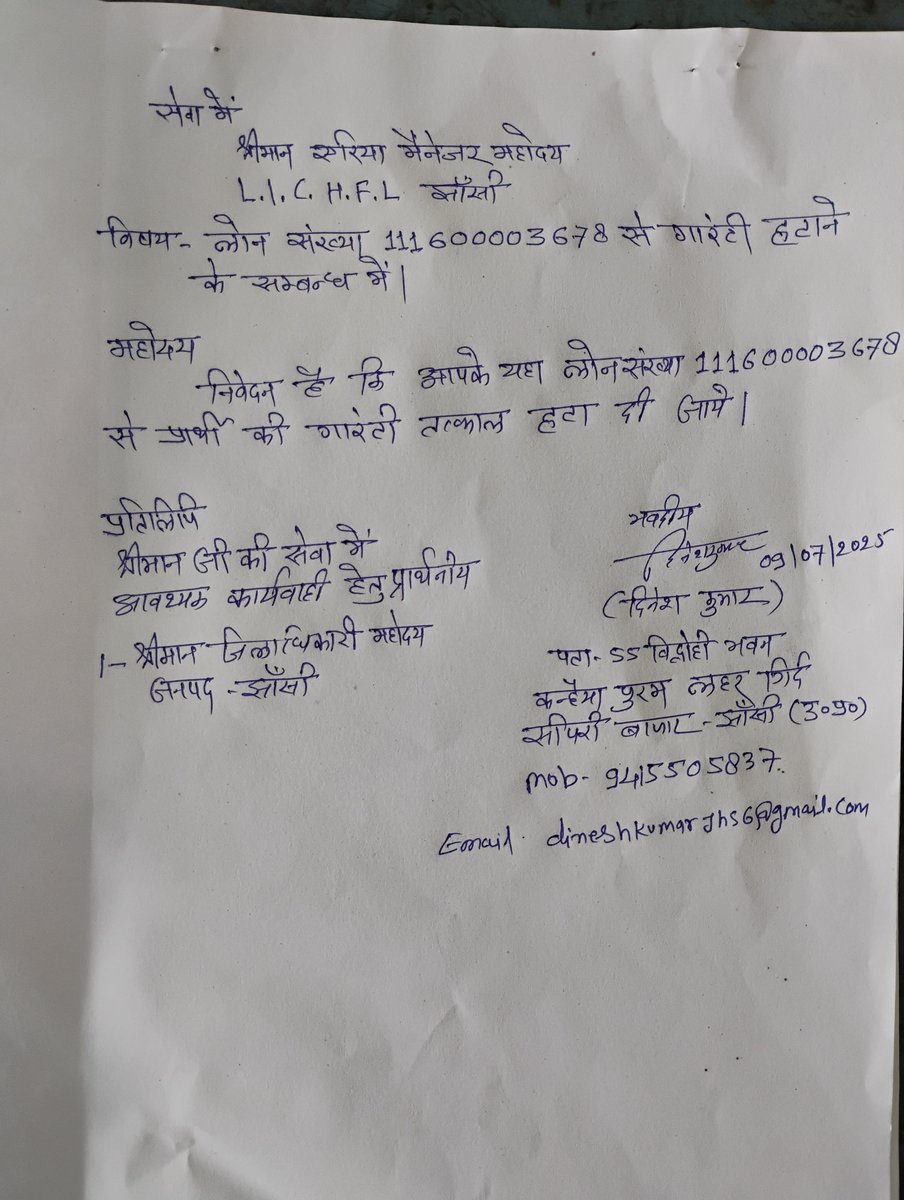 सेवा में
श्रीमान एरिया मैनेजर महोदय
L.I.C. H.F.L झाँसी
विषय- लोन संख्या 111600003678 से गारंटी हटाने
के सम्बन्ध में।
महोदय
निवेदन है कि आपके यहा लोन संख्या 111600003678
से प्रार्थी की गारंटी तत्काल हटा दी जाये।
प्रतिलिपि
श्रीमान जी की सेवा में
आवश्यक कार्यवाही हेतु प्रार्थनीय
1- श्रीमान जिलाधिकारी महोदय
जनपद - झाँसी
भवदीय
दिनेश कुमार 09/07/2025
(दिनेश कुमार)
पता- 55 विद्रोही भवन
कन्हैया पुरम लहर गिर्द
सीपरी बाजार - झाँसी (उ०प्र०)
mob- 9415505837.
Email. dineshkumarjhs6@gmail.com